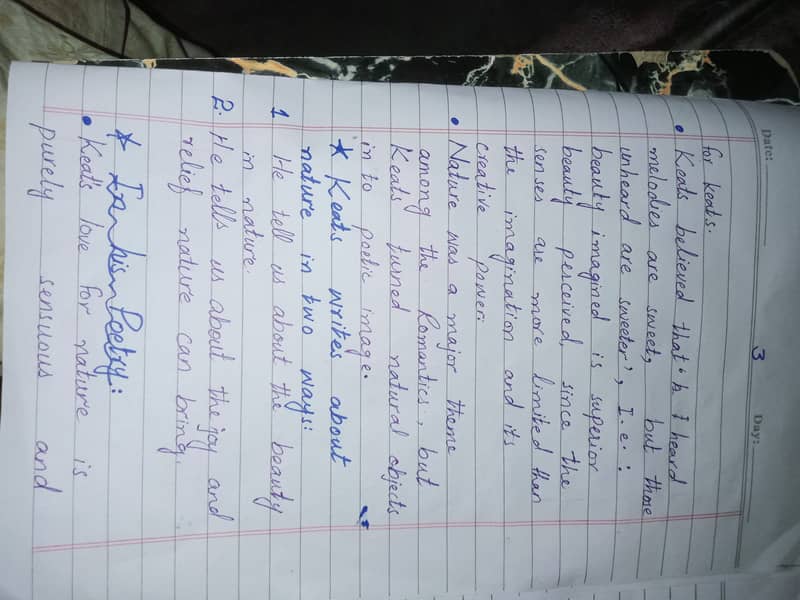 Date: 3 Day:
for keats.
• Keats believed that 'h I heard
melodies are sweet, but those
unheard are sweeter', I.e.:
beauty imagined is superior
beauty perceived, since the
senses are more limited than
the imagination and its
creative power.
• Nature was a major theme
among the Romantics, but
Keats turned natural objects
in to poetic image.
* Keats writes about
nature in two ways:
1 He tell us about the beauty
in nature.
2. He tells us about the joy and
relief nature can bring.
* Poetry:
• Keats love for nature is
purely sensuous and